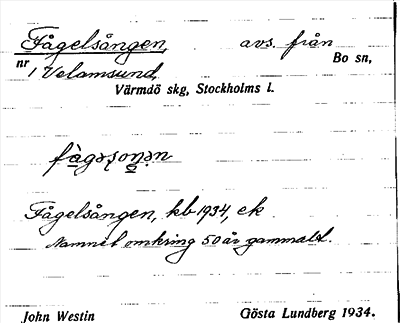 Fågelsången, avs. från
nr 1 Velamsund, Bo sn,
Värmdö skg, Stockholms l.
Fågelsången, kb 1934, ek
Namnet omkring 50 år gammalt.
John Westin Gösta Lundberg 1934.